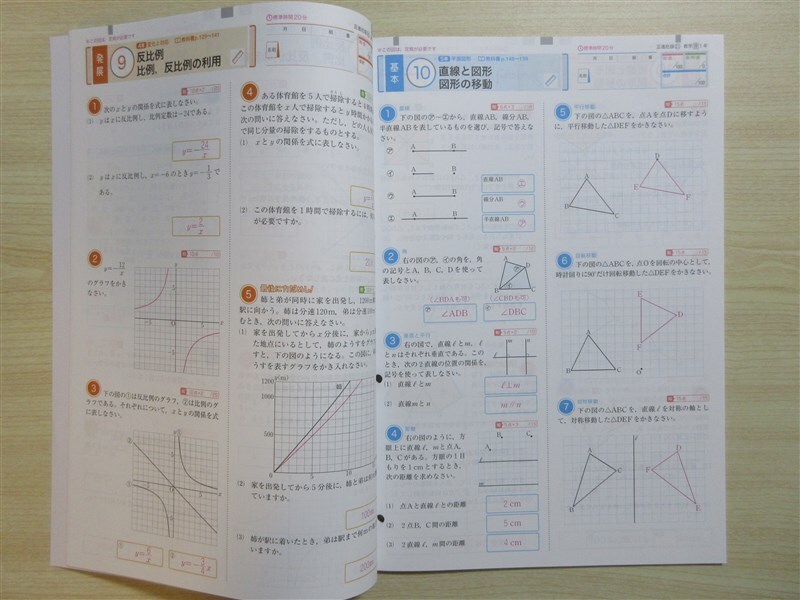 発展
9
反比例
比例，反比例の利用
標準時間20分
1
次のxとyの関係を式に表しなさい。
(1) yはxに反比例し，比例定数は－24である。
y=－24/x
(2) yはxに反比例し，x=－6のときy=－1/3で
ある。
y=2/x
2
y=－12/x
のグラフをかき
なさい。
3
下の図の①は反比例のグラフ，②は比例のグ
ラフである。それぞれについて，xとyの関係を式
に表しなさい。
4
ある体育館を5人で掃除すると
この体育館をx人で掃除すると
次の問いに答えなさい。ただし，どの人も
で同じ分量の掃除をするものとする。
(1) xとyの関係を式に表しなさい。
(2) この体育館を1時間で掃除するには，
が必要ですか。
5
姉と弟が同時に家を出発し，
駅に向かう。姉は分速120m，弟は分速
むとき，次の問いに答えなさい。
(1) 家を出発してからx分後に，家から
た地点にいるとして，姉のようすをグラフ
すと，下の図のようになる。この図に，
うすを表すグラフをかき入れなさい。
y(m)
1200
1000
500
0
5
10
姉
(2) 家を出発してから5分後に，姉と弟は
ていますか。
100m
(3) 姉が駅に着いたとき，弟は駅まで何m
いますか。
基本
10
直線と図形
図形の移動
標準時間20分
1
下の図の㋐～㋓から，直線AB，線分AB，
半直線ABを表しているものを選び，記号で答えな
さい。
㋐ A B
㋑ A B
㋒ A B
㋓ A B
直線AB
線分AB
半直線AB
2
角
右の図の㋐，㋑の角を，角
の記号とA，B，C，Dを使って
表しなさい。
A
D
B
C
(∠BDAも可)
(∠CBDも可)
㋐ ∠ADB
㋑ ∠DBC
3
垂直と平行
右の図で，直線ℓとm，ℓ
とnはそれぞれ垂直である。このと
き，次の2直線の位置の関係を，
記号を使って表しなさい。
(1) 直線ℓとm
ℓ⊥m
(2) 直線mとn
m//n
4
距離
右の図のように，方
眼上に直線ℓ，mと点A，
B，Cがある。方眼の1目
もりを1cmとするとき，
次の距離を求めなさい。
A
B
C
(1) 点Aと直線ℓとの距離
2cm
(2) 2点B，C間の距離
5cm
(3) 2直線ℓ，m間の距離
4cm
5
平行移動
下の図の△ABCを，点Aを点Dに移すよう
に，平行移動した△DEFをかきなさい。
A
B
C
D
E
F
6
回転移動
下の図の△ABCを，点Oを回転の中心として，
時計回りに90°だけ回転移動した△DEFをかきなさい。
A
B
C
D
E
F
O
7
対称移動
下の図の△ABCを，直線ℓを対称の軸とし
て，対称移動した△DEFをかきなさい。
A
B
C
D
E
F
ℓ